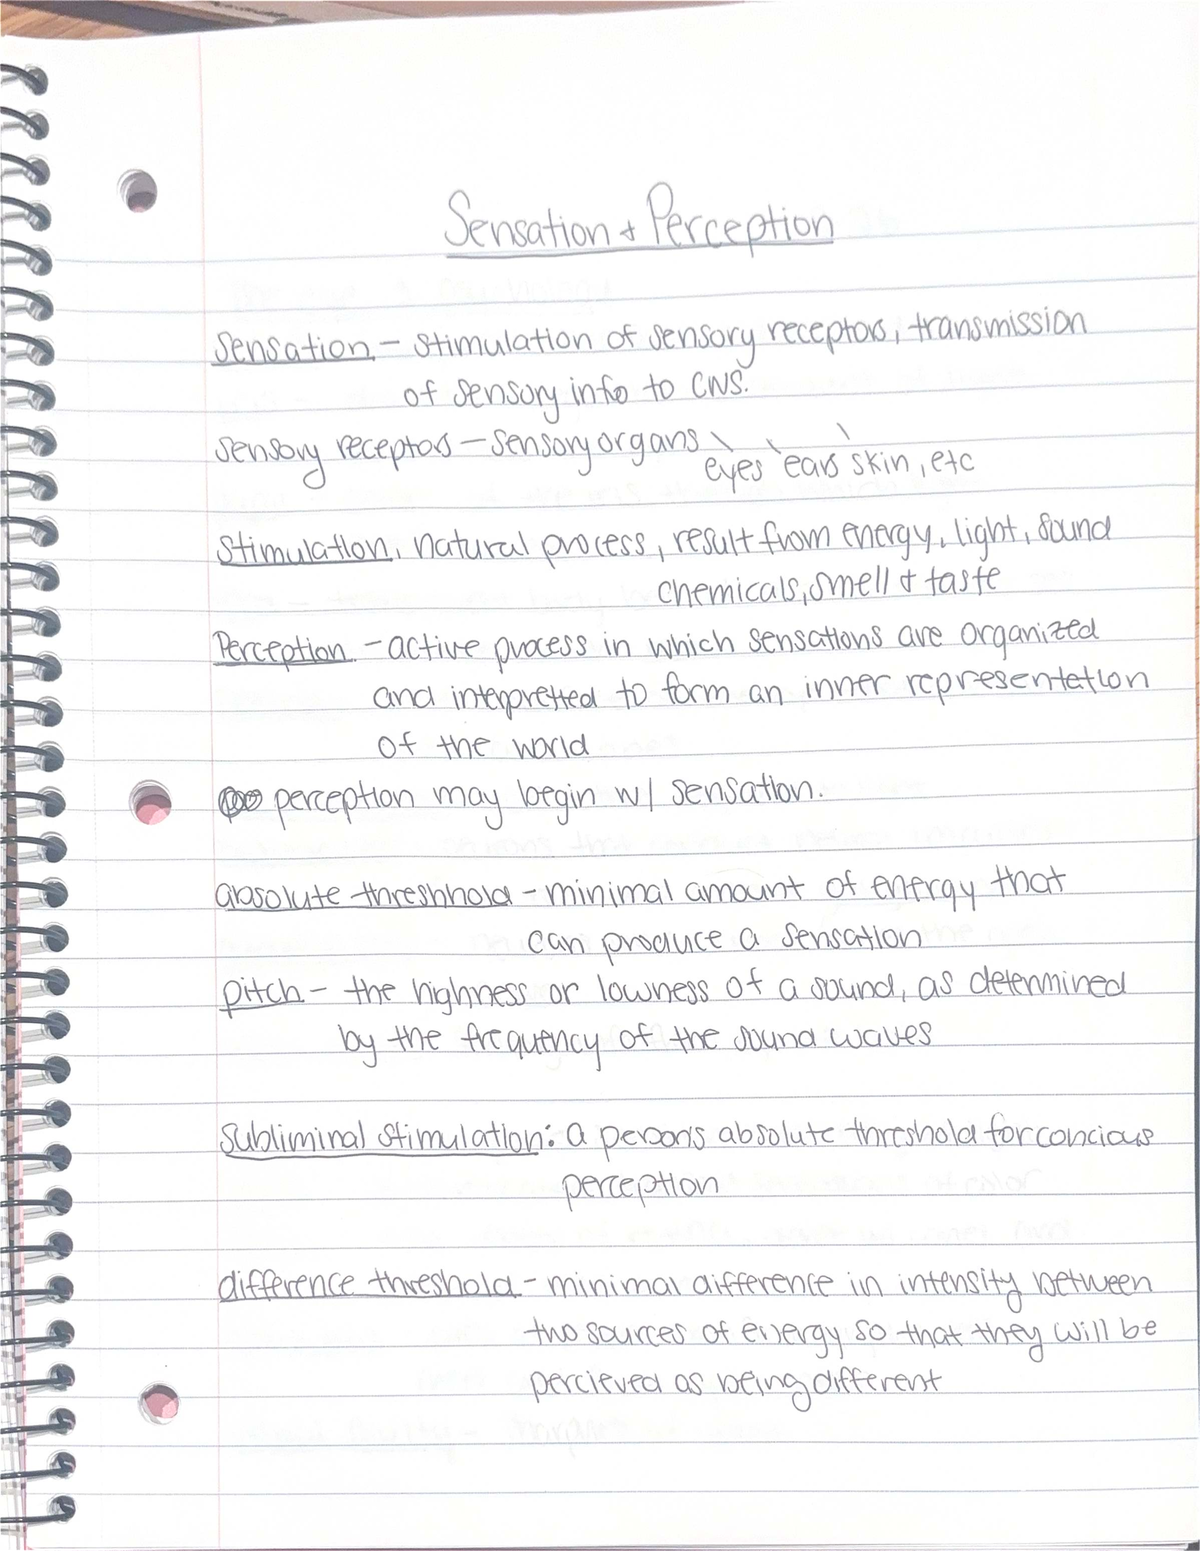 Sensation + Perception
Sensation - stimulation of sensory receptors, transmission
of sensory info to CNS.
sensory receptors - sensory organs
eyes ears skin, etc
Stimulation, natural process, result from energy, light, sound
chemicals, smell + taste
Perception - active process in which sensations are organized
and interpretted to form an inner representation
of the world
perception may begin w/ sensation.
absolute threshhold - minimal amount of energy that
can produce a sensation
pitch - the highness or lowness of a sound, as determined
by the frequency of the sound waves
Subliminal stimulation: a persons absolute threshold for concious
perception
difference threshold - minimal difference in intensity between
two sources of energy so that they will be
percieved as being different